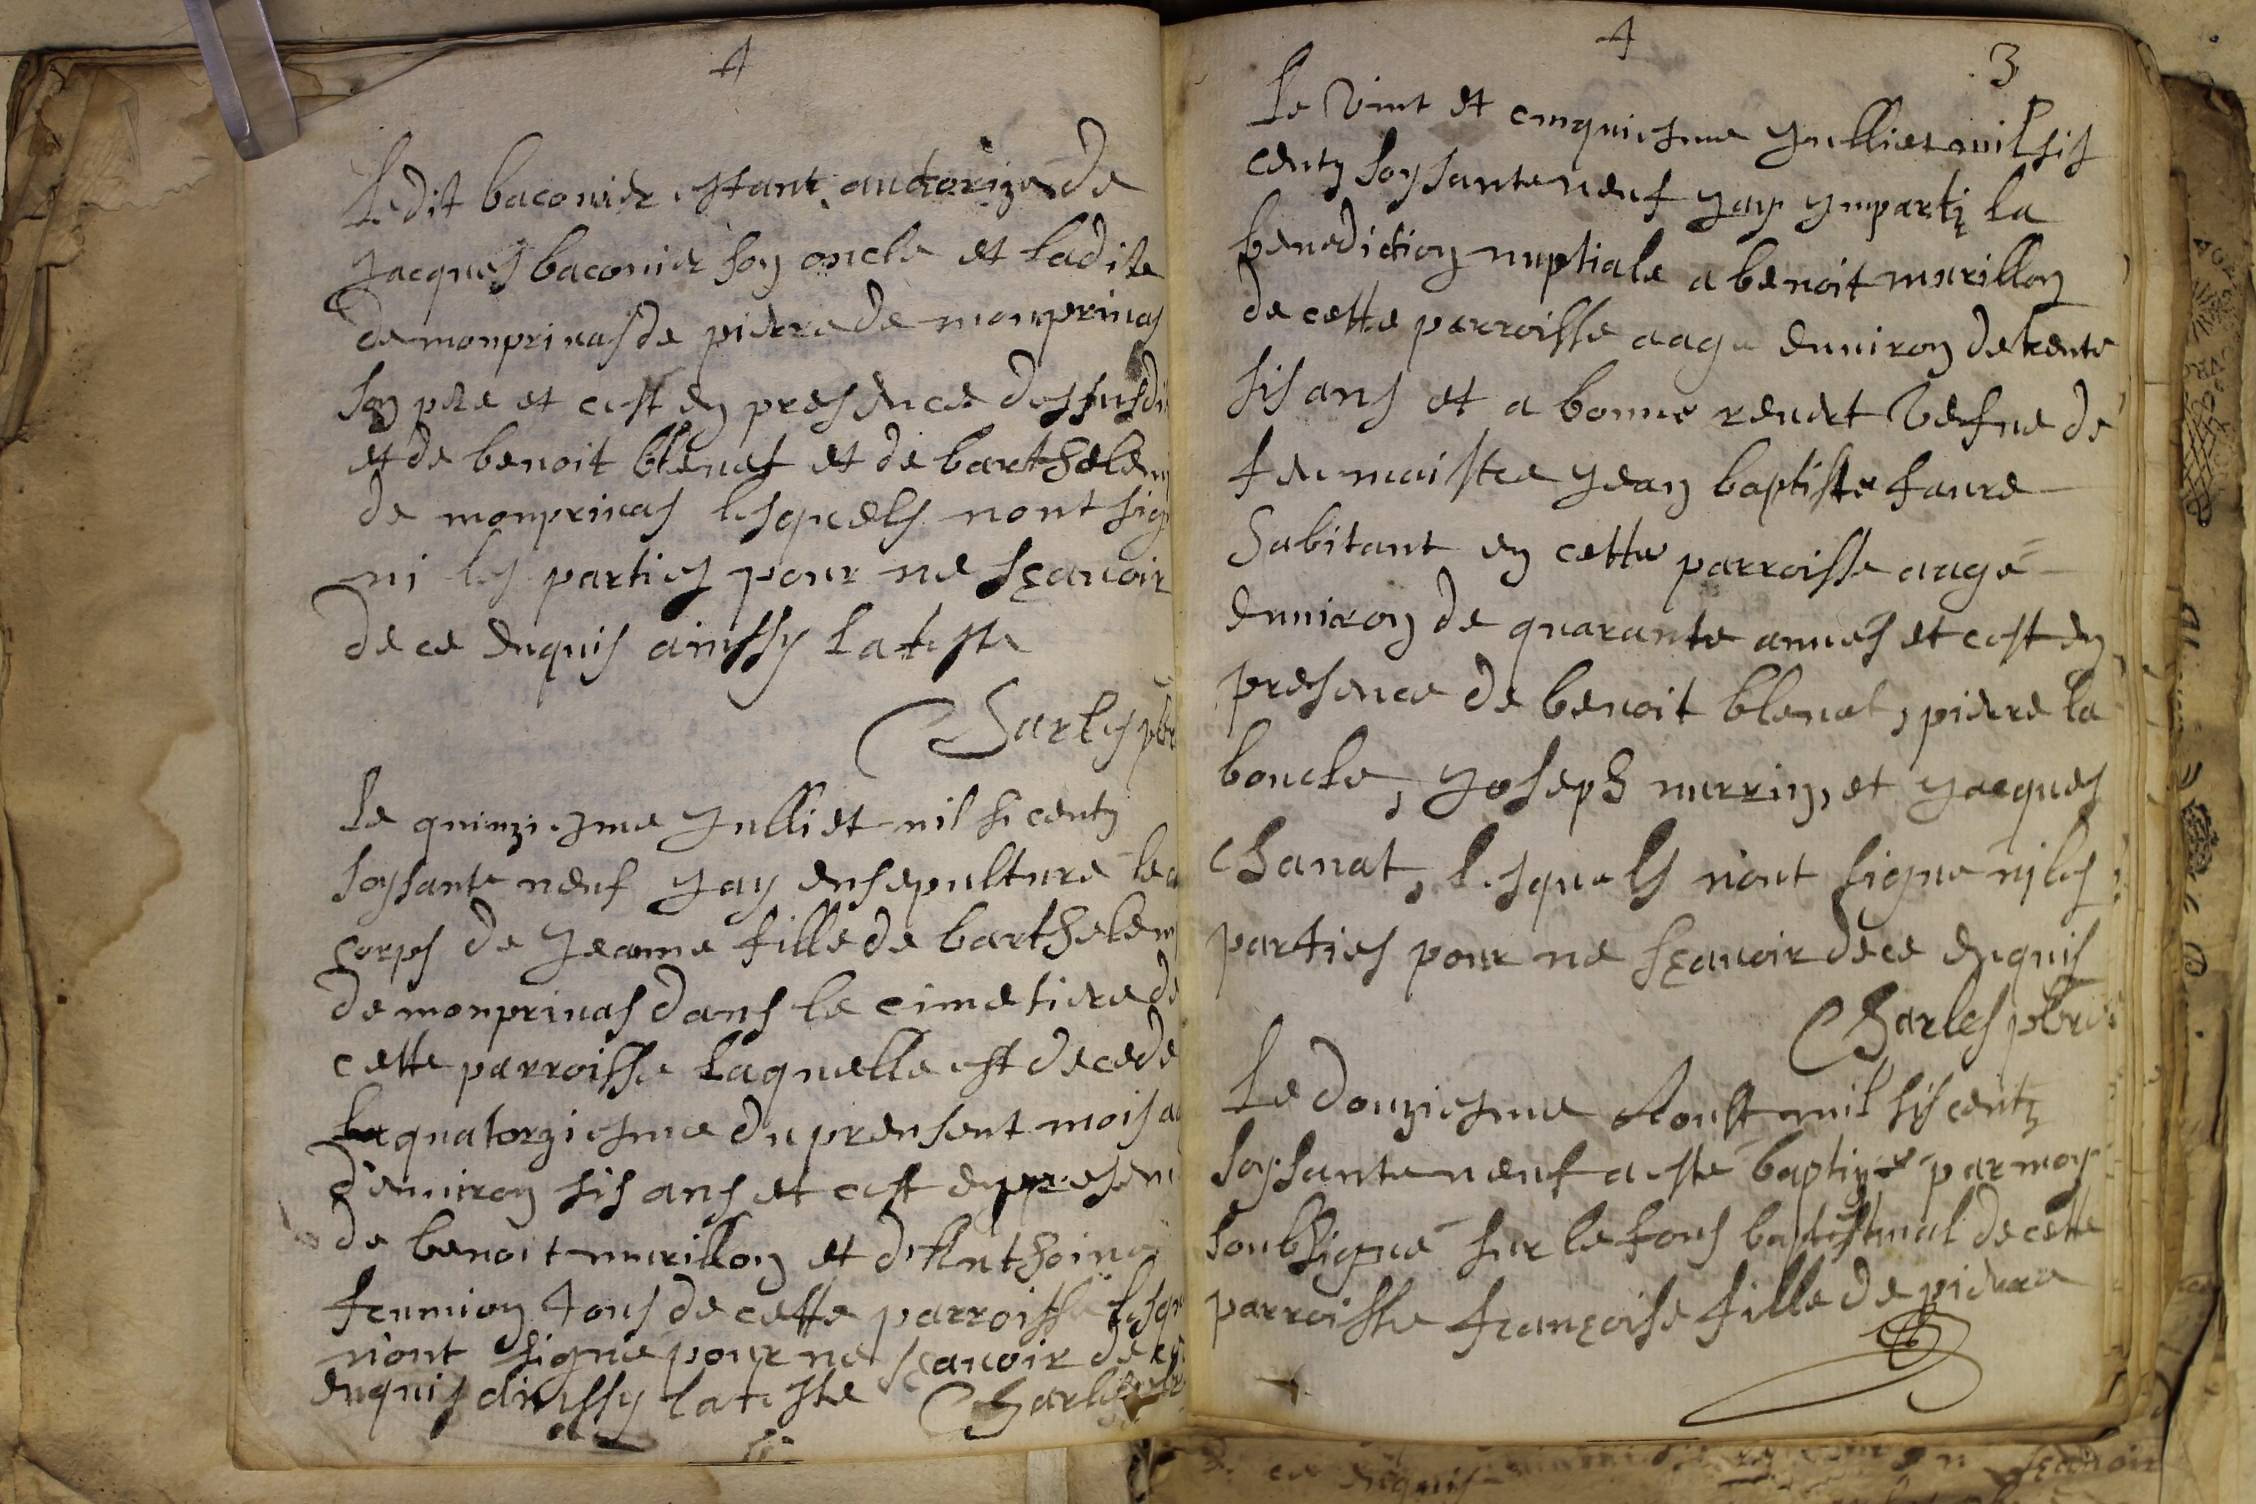 4
Ledit baconier estant authorize de
Jacques baconier son oncle et ladite
de monprivas de pierre de monprivas
son pere et cest en presence des susdi
et de benoit blenat et de barthelem
de monprivas lesquels nont sig
ni les parties pour ne sçavoir
de ce enquis ainssy lateste
Charles pbr
Le quinziesme Julliet mil si centz
soysante neuf Jay ensepulture le
corps de Jeanne fille de barthelem
de monprivas dans le cimetiere de
cette parroisse laquelle est decede
quatorziesme du prensent mois
d'environ sis ans et cest en presen
de benoit murillon et d'Anthoine
tous de cette parroisse lesqu
n'ont signé pour ne sçavoir de
enquis ainssy lateste Charles
4
3
Le Vint et cinquiesme Julliet mil sis
centz soysante neuf Jay Imparti la
benediction nuptiale a benoit murillon
de cette parroisse aage environ de trente
sis ans et a bonne Vefve de
feu maistre Jean baptiste faure
habitant en cette parroisse aagé
environ de quarante annes et cest en
presence de benoit blenat, pierre la
boucle, Joseph murrin, et Jacques
Chanat, lesquels n'ont signe ni les
parties pour ne sçavoir de ce enquis
Charles pbre
Le douziesme Aoust mil sis centz
soysante neuf a este baptizé par moy
soubsigné sur le fons baptistmal de cette
parroisse françoise fille de pierre